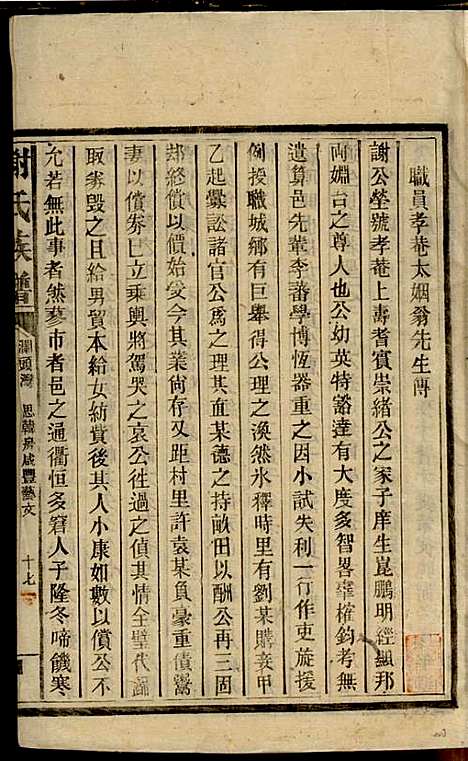 職員孝菴太姻翁先生傳
謝公瑩號孝菴上壽耆賓崇緒公之家子庠生崑鵬明經顯邦
兩姻台之尊人也公幼英特豁達有大度多智畧權鈞考無
遺算邑先輩李蕃學博恆器重之因小試失利一行作吏旋援
例授職城鄉有巨舉得公理之渙然氷釋時里有劉某購衰甲
乙起釁訟諸官公爲之理其直某德之持畝田以酬公再三固
却終償以價始受今其業尚存又距村里許袁某負豪重債鬻
妻以償券已立乘輿將駕哭之哀公往過之偵其情全璧代繭
取券毁之且給男貿本給女紡貲後其人小康如數以償公不
允若無此事者然蓼市者邑之通衢恒多窘人子隆冬啼饑寒
謝氏族譜
澗頭灣
思韓房咸豐藝文
十七